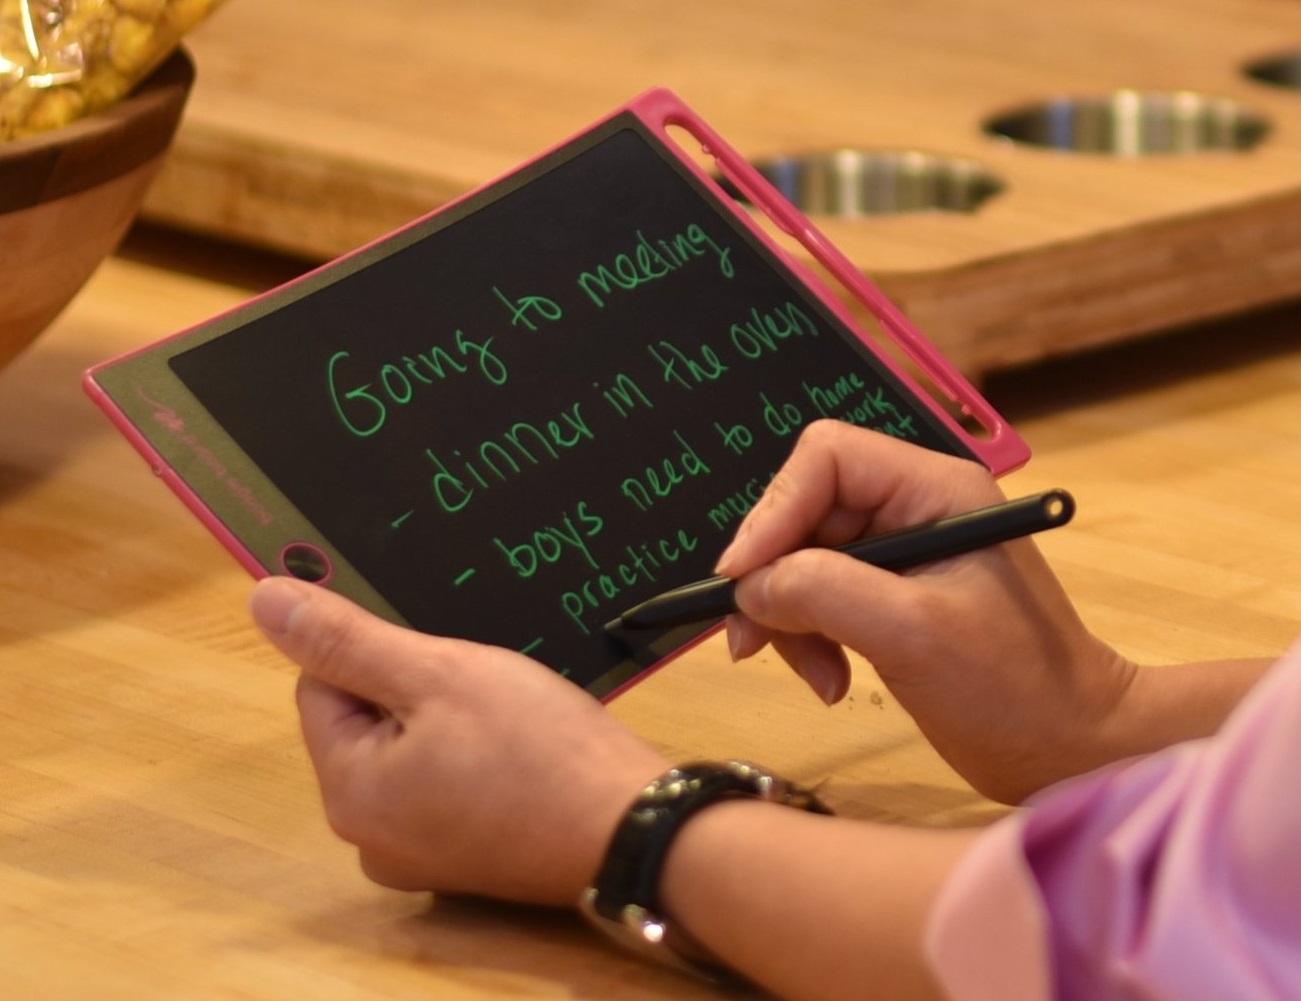 Going to meeting
- dinner in the oven
- boys need to do home
work
practice music